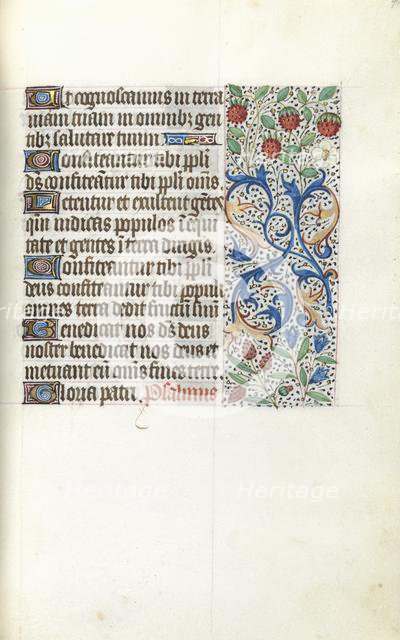 Ut cognoscamus in terra
uiam tuam in omnibz gen
tibz salutare tuum.
Confiteantur tibi ppli
ds confiteātur tibi ppli om̄s.
Letentur et exultent gētes
qm̄ iudicas populos ī equi
tate et gentes ī terra dirigis.
Confiteantur tibi ppli
deus confiteātur tibi populi
omnes terra dedit fructū suū
Benedicat nos d̄s deus
noster benedicat nos deus et
metuant eū om̄s fines terre.
Gloria patri. Psalmus
Heritage
Heritage
Heritage
Heritage